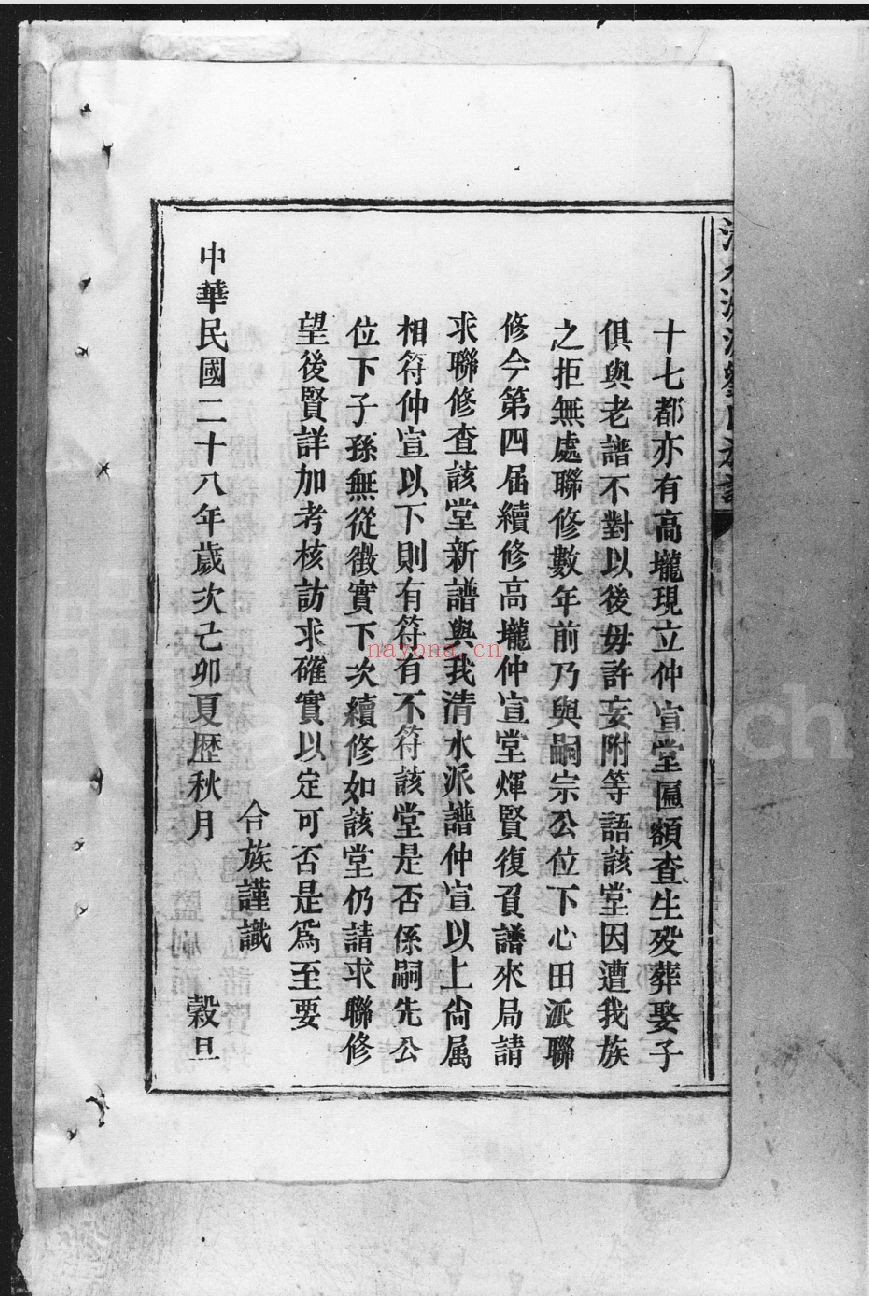 十七都亦有高壠現立仲宣堂匾額查生歿葬娶子
俱與老譜不對以後毋許妄附等語該堂因遭我族
之拒無處聯修數年前乃與嗣宗公位下心田派聯
修今第四届續修高壠仲宣堂煇賢復負譜來局請
求聯修查該堂新譜與我清水派譜仲宣以上尙属
相符仲宣以下則有符有不符該堂是否係嗣先公
位下子孫無從徴實下次續修如該堂仍請求聯修
望後賢詳加考核訪求確實以定可否是爲至要
合族謹識
中華民國二十八年歲次己卯夏歷秋月
穀旦
nayona.cn